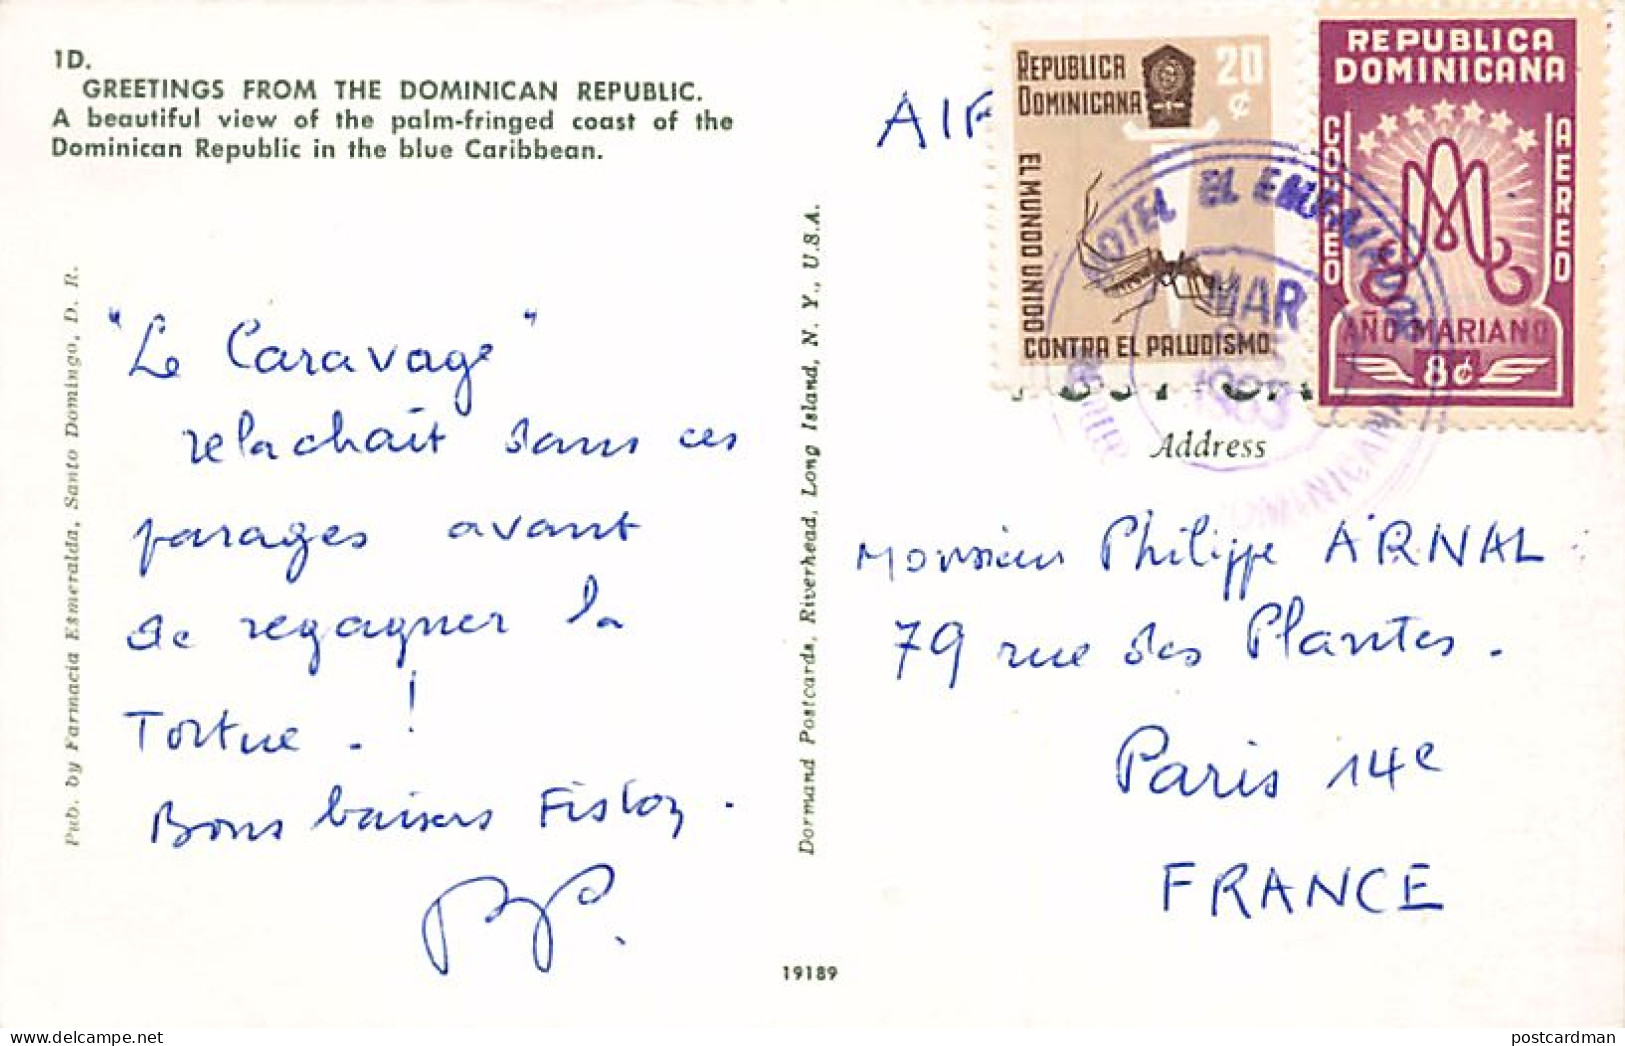 1D.
GREETINGS FROM THE DOMINICAN REPUBLIC.
A beautiful view of the palm-fringed coast of the
Dominican Republic in the blue Caribbean.
Pub. by Farmacia Esmeralda, Santo Domingo, D. R.
"Le Caravage"
relachait dans ces
parages avant
de regagner la
Tortue. !
Bons baisers
Dormand Postcards, Riverhead, Long Island, N. Y., U.S.A.
19189
AIR
REPUBLICA
DOMINICANA
20
¢
EL MUNDO UNIDO
CONTRA EL PALUDISMO
REPUBLICA
DOMINICANA
CORREO
AEREO
AÑO MARIANO
8¢
HOTEL EL EMBAJADOR
MAR
DOMINICANA
Address
Monsieur Philippe ARNAL
79 rue des Plantes.
Paris 14e
FRANCE
delcampe.net
postcardman